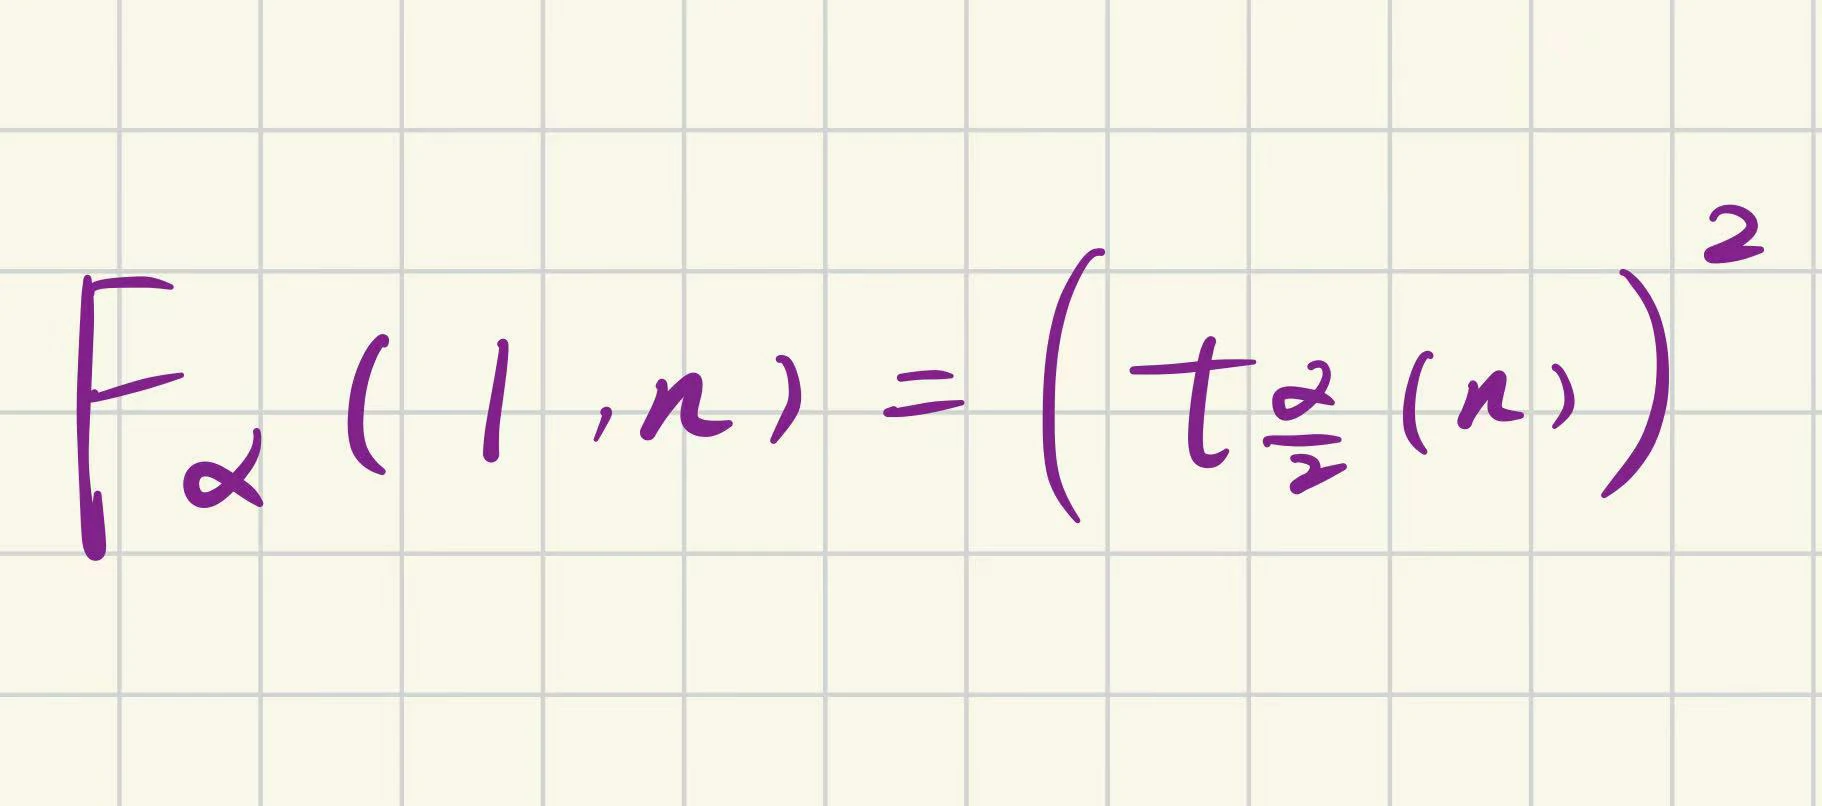 F_α(1,n) = (t_{α/2}(n))^2